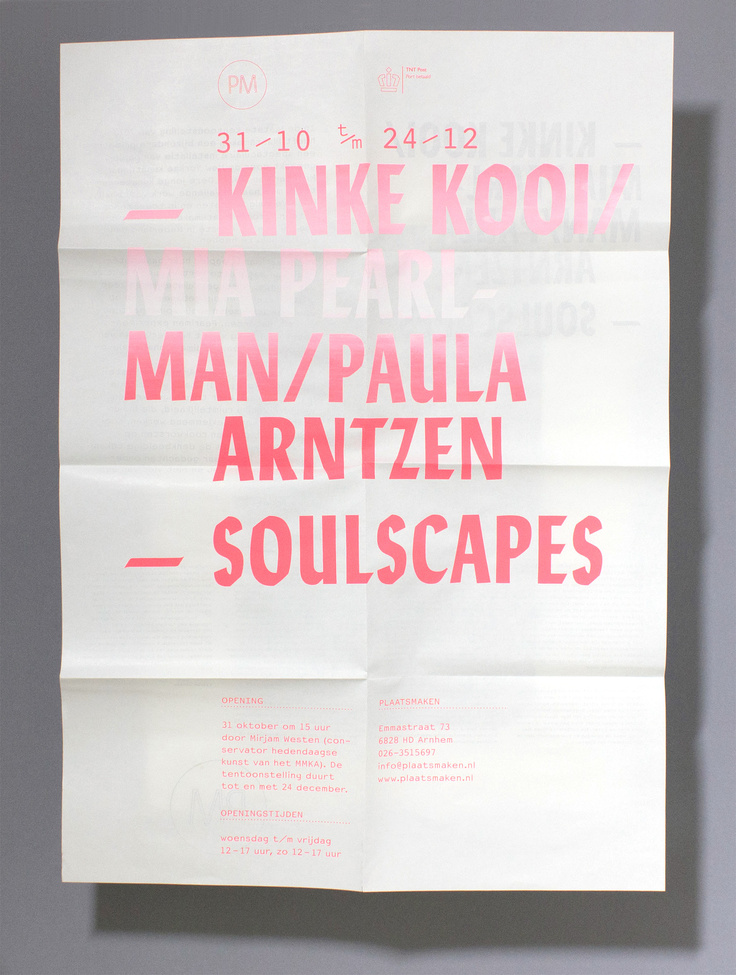 PM
TNT Post
Port betaald
31/10 t/m 24/12
— KINKE KOOI/
MIA PEARL-
MAN/PAULA
ARNTZEN
— SOULSCAPES
OPENING
31 oktober om 15 uur
door Mirjam Westen (con-
servator hedendaagse
kunst van het MMKA). De
tentoonstelling duurt
tot en met 24 december.
OPENINGSTIJDEN
woensdag t/m vrijdag
12–17 uur, zo 12–17 uur
PLAATSMAKEN
Emmastraat 73
6828 HD Arnhem
026-3515697
info@plaatsmaken.nl
www.plaatsmaken.nl